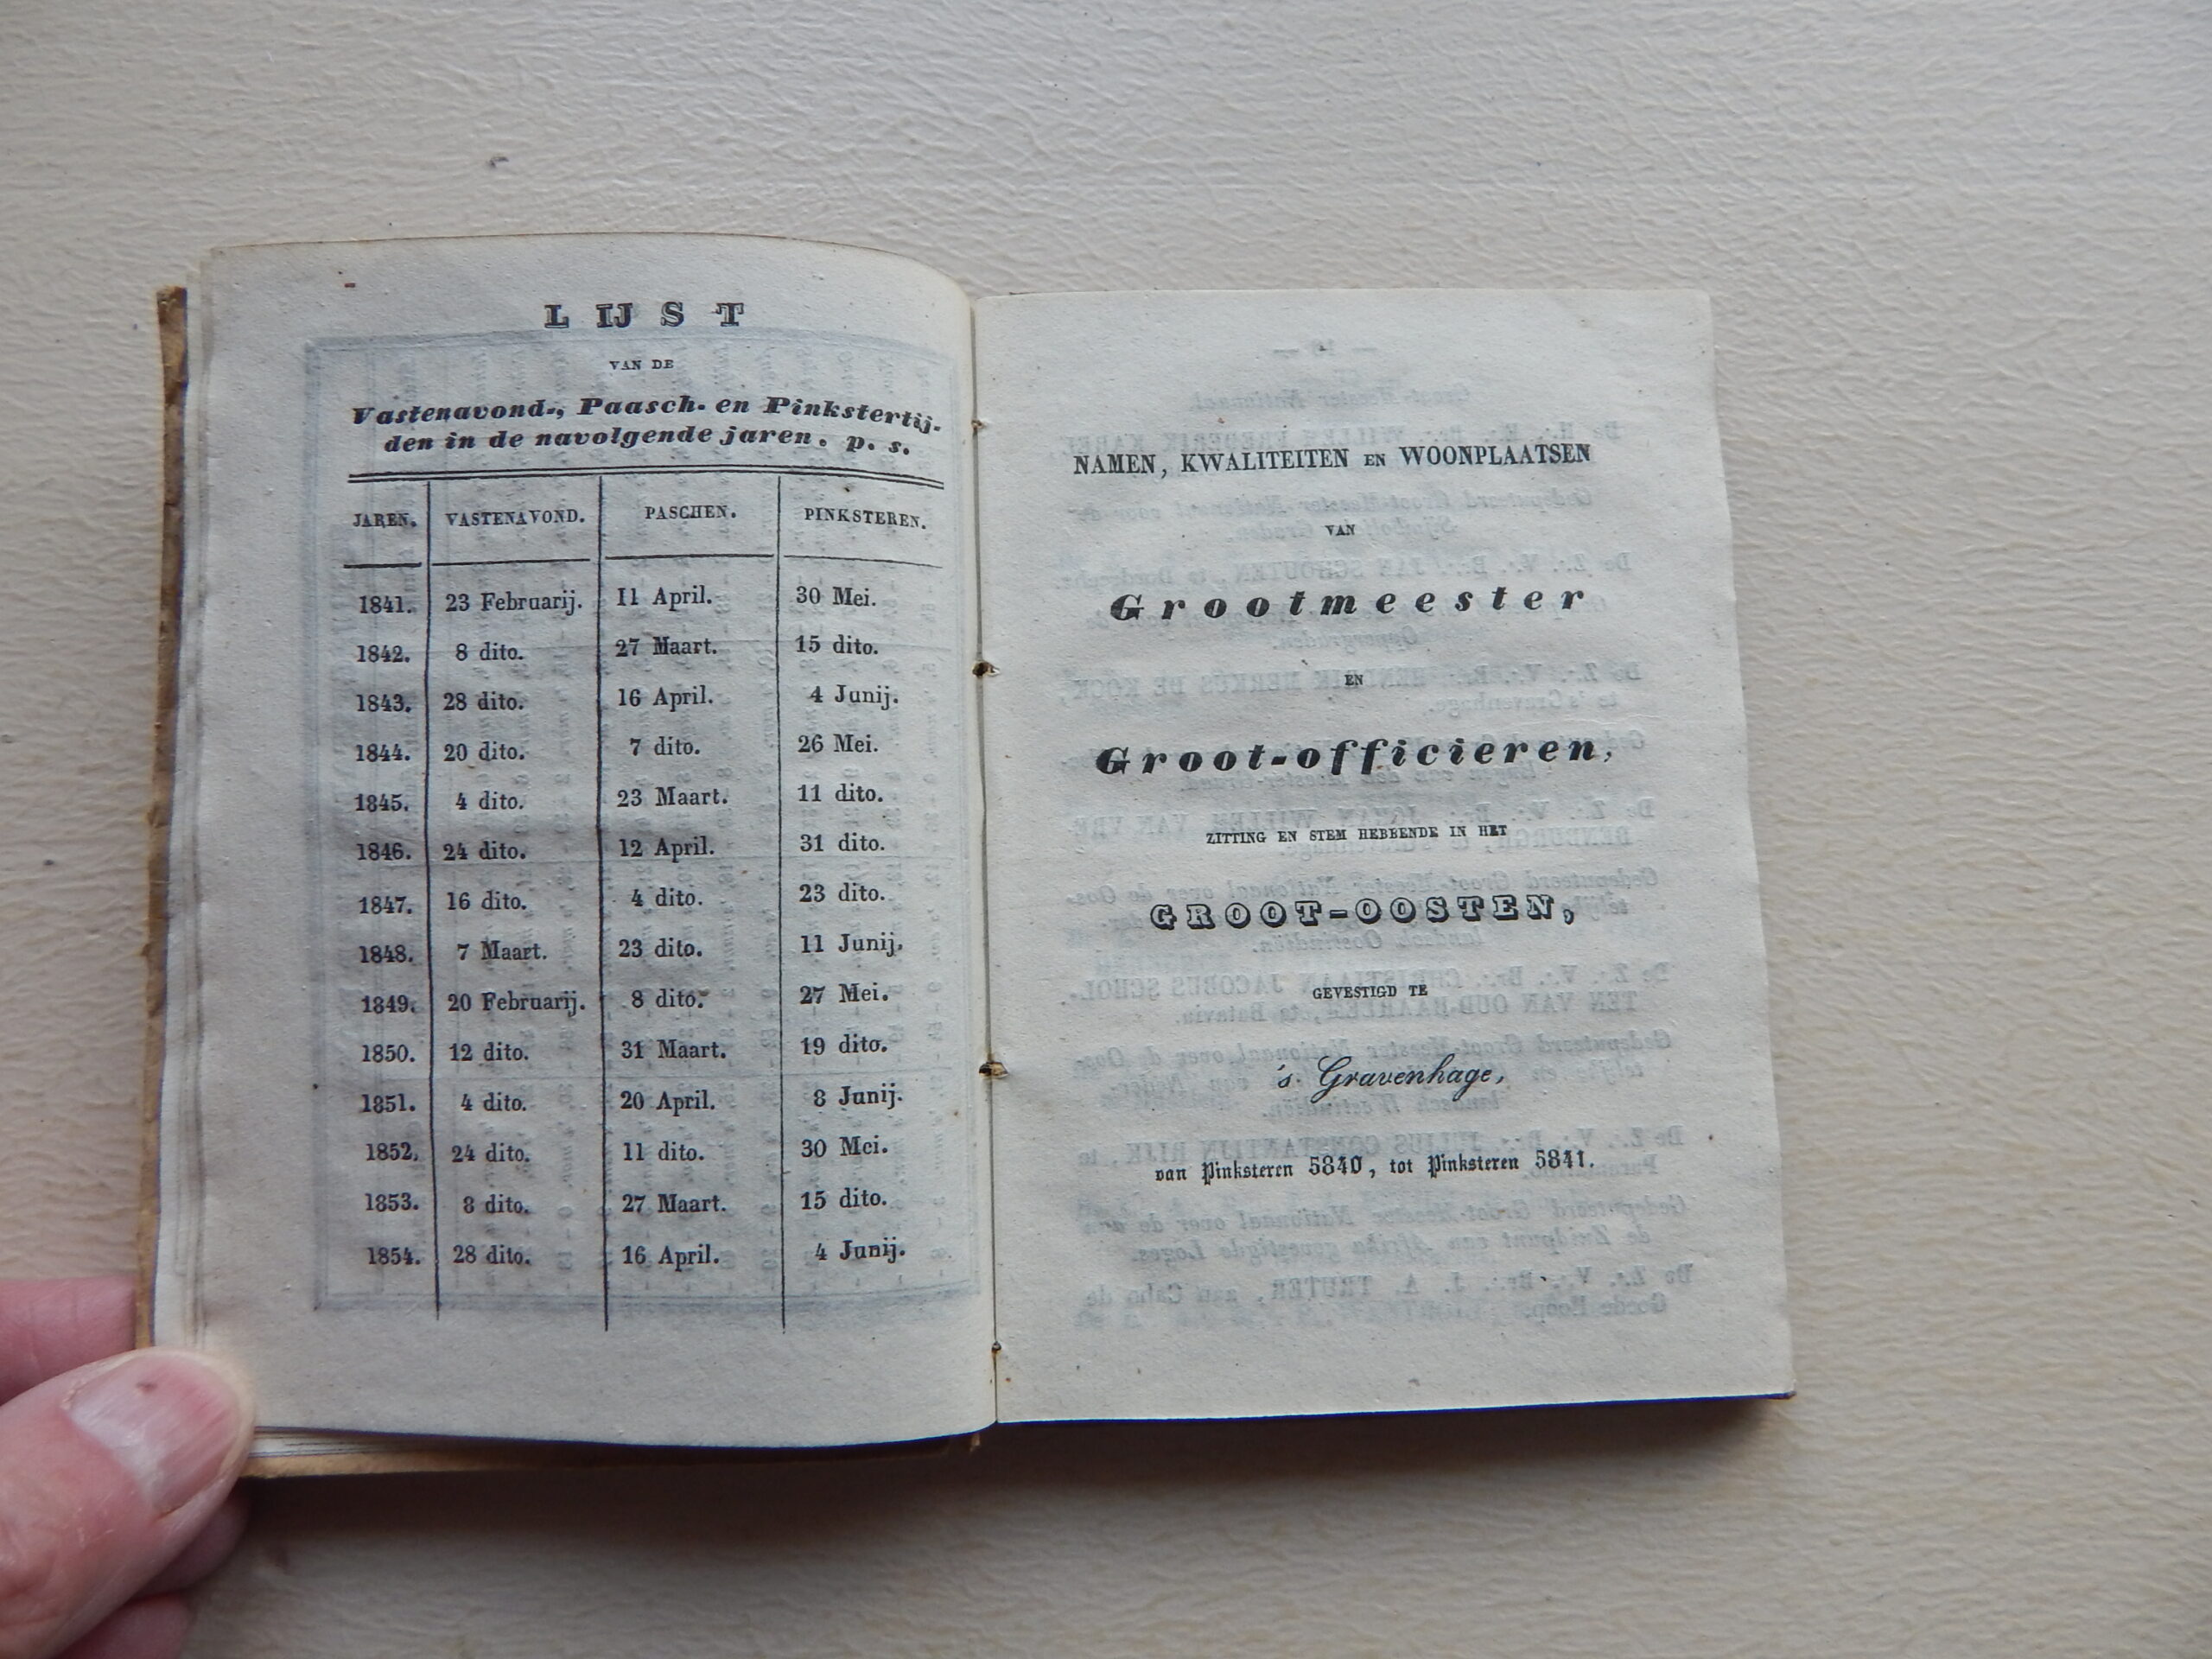 LIJST
VAN DE
Vastenavond-, Paasch- en Pinkstertij-
den in de navolgende jaren. p. s.
JAREN. VASTENAVOND. PASCHEN. PINKSTEREN.
1841. 23 Februarij. 11 April. 30 Mei.
1842. 8 dito. 27 Maart. 15 dito.
1843. 28 dito. 16 April. 4 Junij.
1844. 20 dito. 7 dito. 26 Mei.
1845. 4 dito. 23 Maart. 11 dito.
1846. 24 dito. 12 April. 31 dito.
1847. 16 dito. 4 dito. 23 dito.
1848. 7 Maart. 23 dito. 11 Junij.
1849. 20 Februarij. 8 dito. 27 Mei.
1850. 12 dito. 31 Maart. 19 dito.
1851. 4 dito. 20 April. 8 Junij.
1852. 24 dito. 11 dito. 30 Mei.
1853. 8 dito. 27 Maart. 15 dito.
1854. 28 dito. 16 April. 4 Junij.
NAMEN, KWALITEITEN EN WOONPLAATSEN
VAN
Grootmeester
EN
Groot-officieren,
ZITTING EN STEM HEBBENDE IN HET
GROOT-OOSTEN,
GEVESTIGD TE
's Gravenhage,
van Pinksteren 5840, tot Pinksteren 5841.